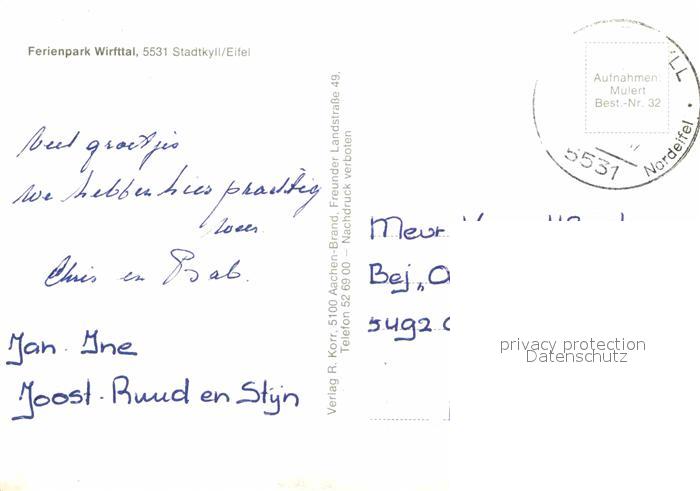 Ferienpark Wirfttal, 5531 Stadtkyll/Eifel
Veel groetjes
we hebben hier prachtig
weer
Chris en Bab.
Jan. Ine
Joost. Ruud en Stijn
Verlag R. Korr, 5100 Aachen-Brand, Freunder Landstraße 49,
Telefon 52 69 00 – Nachdruck verboten
Aufnahmen:
Mulert
Best.-Nr. 32
5531
Nordeifel
Mevr
Bej
5492
privacy protection
Datenschutz